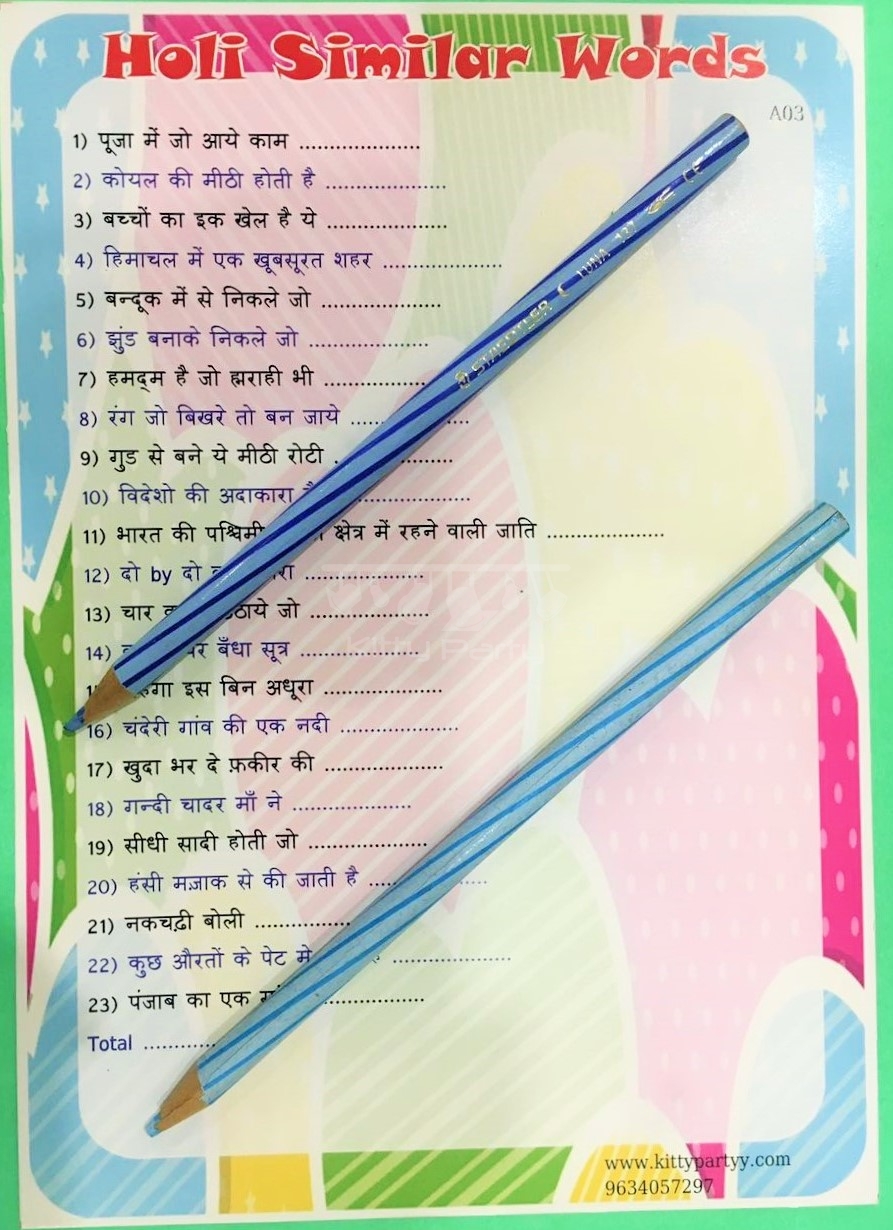 Holi Similar Words
A03
1) पूजा में जो आये काम ....................
2) कोयल की मीठी होती है ....................
3) बच्चों का इक खेल है ये ....................
4) हिमाचल में एक खूबसूरत शहर ....................
5) बन्दूक में से निकले जो ....................
6) झुंड बनाके निकले जो ....................
7) हमद्म है जो ह्मराही भी ..................
8) रंग जो बिखरे तो बन जाये ....................
9) गुड से बने ये मीठी रोटी ..........
10) विदेशो की अदाकारा ....................
11) भारत की पश्चिमी क्षेत्र में रहने वाली जाति ....................
12) दो by दो ....................
13) चार जो ....................
14) बँधा सूत्र ....................
इस बिन अधूरा ....................
16) चंदेरी गांव की एक नदी ....................
17) खुदा भर दे फ़कीर की ....................
18) गन्दी चादर माँ ने ....................
19) सीधी सादी होती जो ....................
20) हंसी मज़ाक से की जाती है ....................
21) नकचढ़ी बोली ................
22) कुछ औरतों के पेट मे ....................
23) पंजाब का एक ..................
Total ............
STAEDTLER LUNA 137 CE
स्वागतम
Kitty Party
www.kittypartyy.com
9634057297